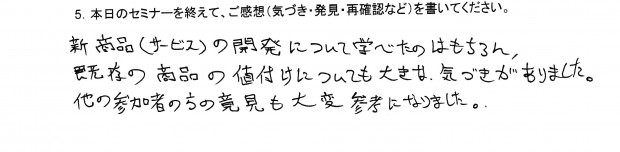 5. 本日のセミナーを終えて、ご感想(気づき・発見・再確認など)を書いてください。
新商品(サービス)の開発について学べたのはもちろん,
既存の商品の値付けについても大きな気づきがありました。
他の参加者の方の意見も大変参考になりました。